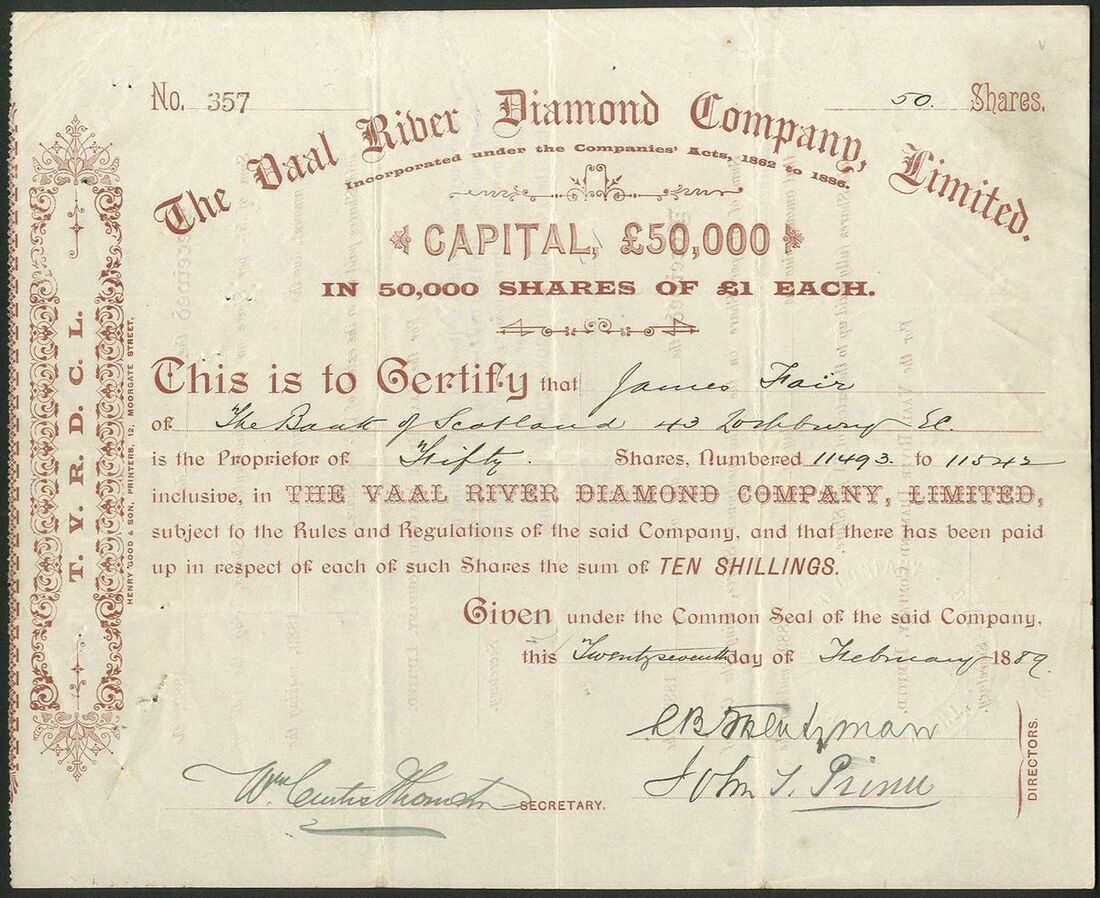 No. 357
50. Shares.
The Vaal River Diamond Company, Limited.
Incorporated under the Companies' Acts, 1862 to 1886.
CAPITAL, £50,000
IN 50,000 SHARES OF £1 EACH.
This is to Certify that James Fair
of The Bank of Scotland 43 Lothbury E.C.
is the Proprietor of Fifty. Shares, Numbered 11493. to 11542
inclusive, in THE VAAL RIVER DIAMOND COMPANY, LIMITED,
subject to the Rules and Regulations of the said Company, and that there has been paid
up in respect of each of such Shares the sum of TEN SHILLINGS.
Given under the Common Seal of the said Company,
this Twentyseventh day of February 1889.
John S. Prince
DIRECTORS.
Wm Curtis
SECRETARY.
T. V. R. D. C. L.
HENRY GOOD & SON, PRINTERS, 12, MOORGATE STREET.